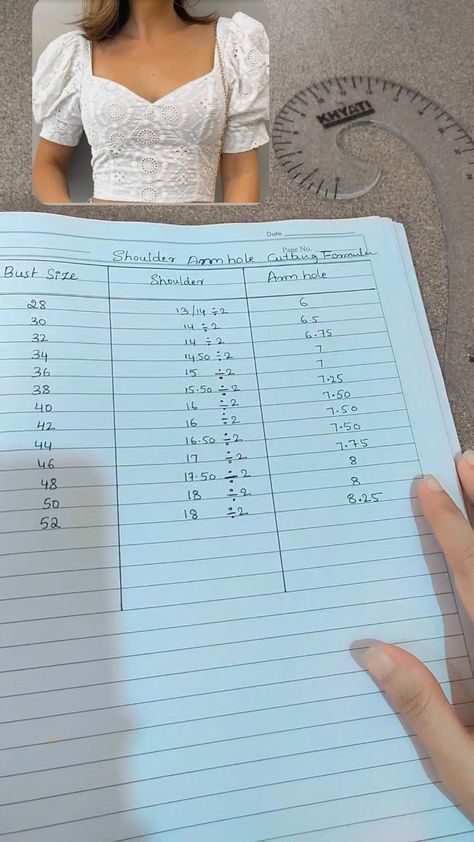 KHYATI
Date
Page No.
Shoulder Arm hole Cutting Formula
Bust Size Shoulder Arm hole
28 13/14 ÷ 2 6
30 14 ÷ 2 6.5
32 14 ÷ 2 6.75
34 14.50 ÷ 2 7
36 15 ÷ 2 7
38 15.50 ÷ 2 7.25
40 16 ÷ 2 7.50
42 16 ÷ 2 7.50
44 16.50 ÷ 2 7.50
46 17 ÷ 2 7.75
48 17.50 ÷ 2 8
50 18 ÷ 2 8
52 18 ÷ 2 8.25